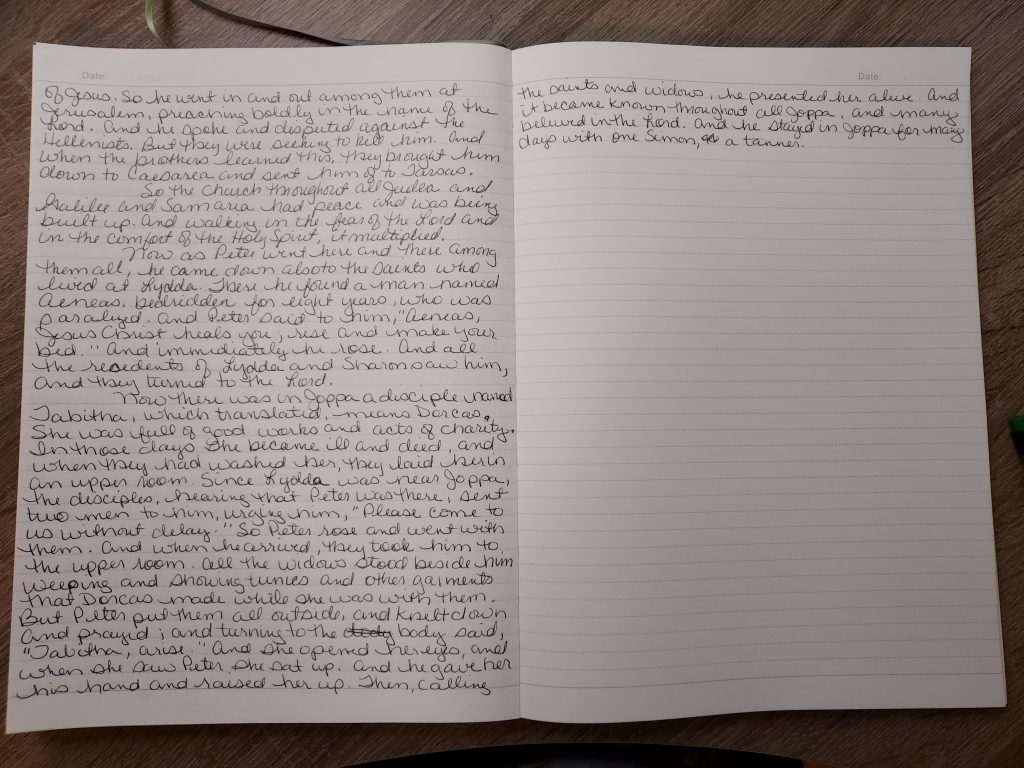 Date:
of Jesus. So he went in and out among them at
Jerusalem, preaching boldly in the name of the
Lord. And he spoke and disputed against the
Hellenists. But they were seeking to kill him. And
when the brothers learned this, they brought him
down to Caesarea and sent him of to Tarsus.
So the church throughout all Judea and
Galilee and Samaria had peace and was being
built up. And walking in the fear of the Lord and
in the comfort of the Holy Spirit, it multiplied.
Now as Peter went here and there among
them all, he came down also to the saints who
lived at Lydda. There he found a man named
Aeneas, bedridden for eight years, who was
paralyzed. And Peter said to him, "Aeneas,
Jesus Christ heals you; rise and make your
bed." And immediately he rose. And all
the recedents of Lydda and Sharon saw him,
and they turned to the Lord.
Now there was in Joppa a disciple named
Tabitha, which translated, means Dorcas.
She was full of good works and acts of charity.
In those days she became ill and died, and
when they had washed her, they laid her in
an upper room. Since Lydda was near Joppa,
the disciples, hearing that Peter was there, sent
two men to him, urging him, "Please come to
us without delay." So Peter rose and went with
them. And when he arrived, they took him to
the upper room. All the widows stood beside him
weeping and showing tunics and other garments
that Dorcas made while she was with them.
But Peter put them all outside, and knelt down
and prayed; and turning to the body said,
"Tabitha, arise." And she opened her eyes, and
when she saw Peter she sat up. And he gave her
his hand and raised her up. Then, calling
Date:
the saints and widows, he presented her alive. And
it became known throughout all Joppa, and many
belived in the Lord. And he stayed in Joppa for many
days with one Simon, a tanner.